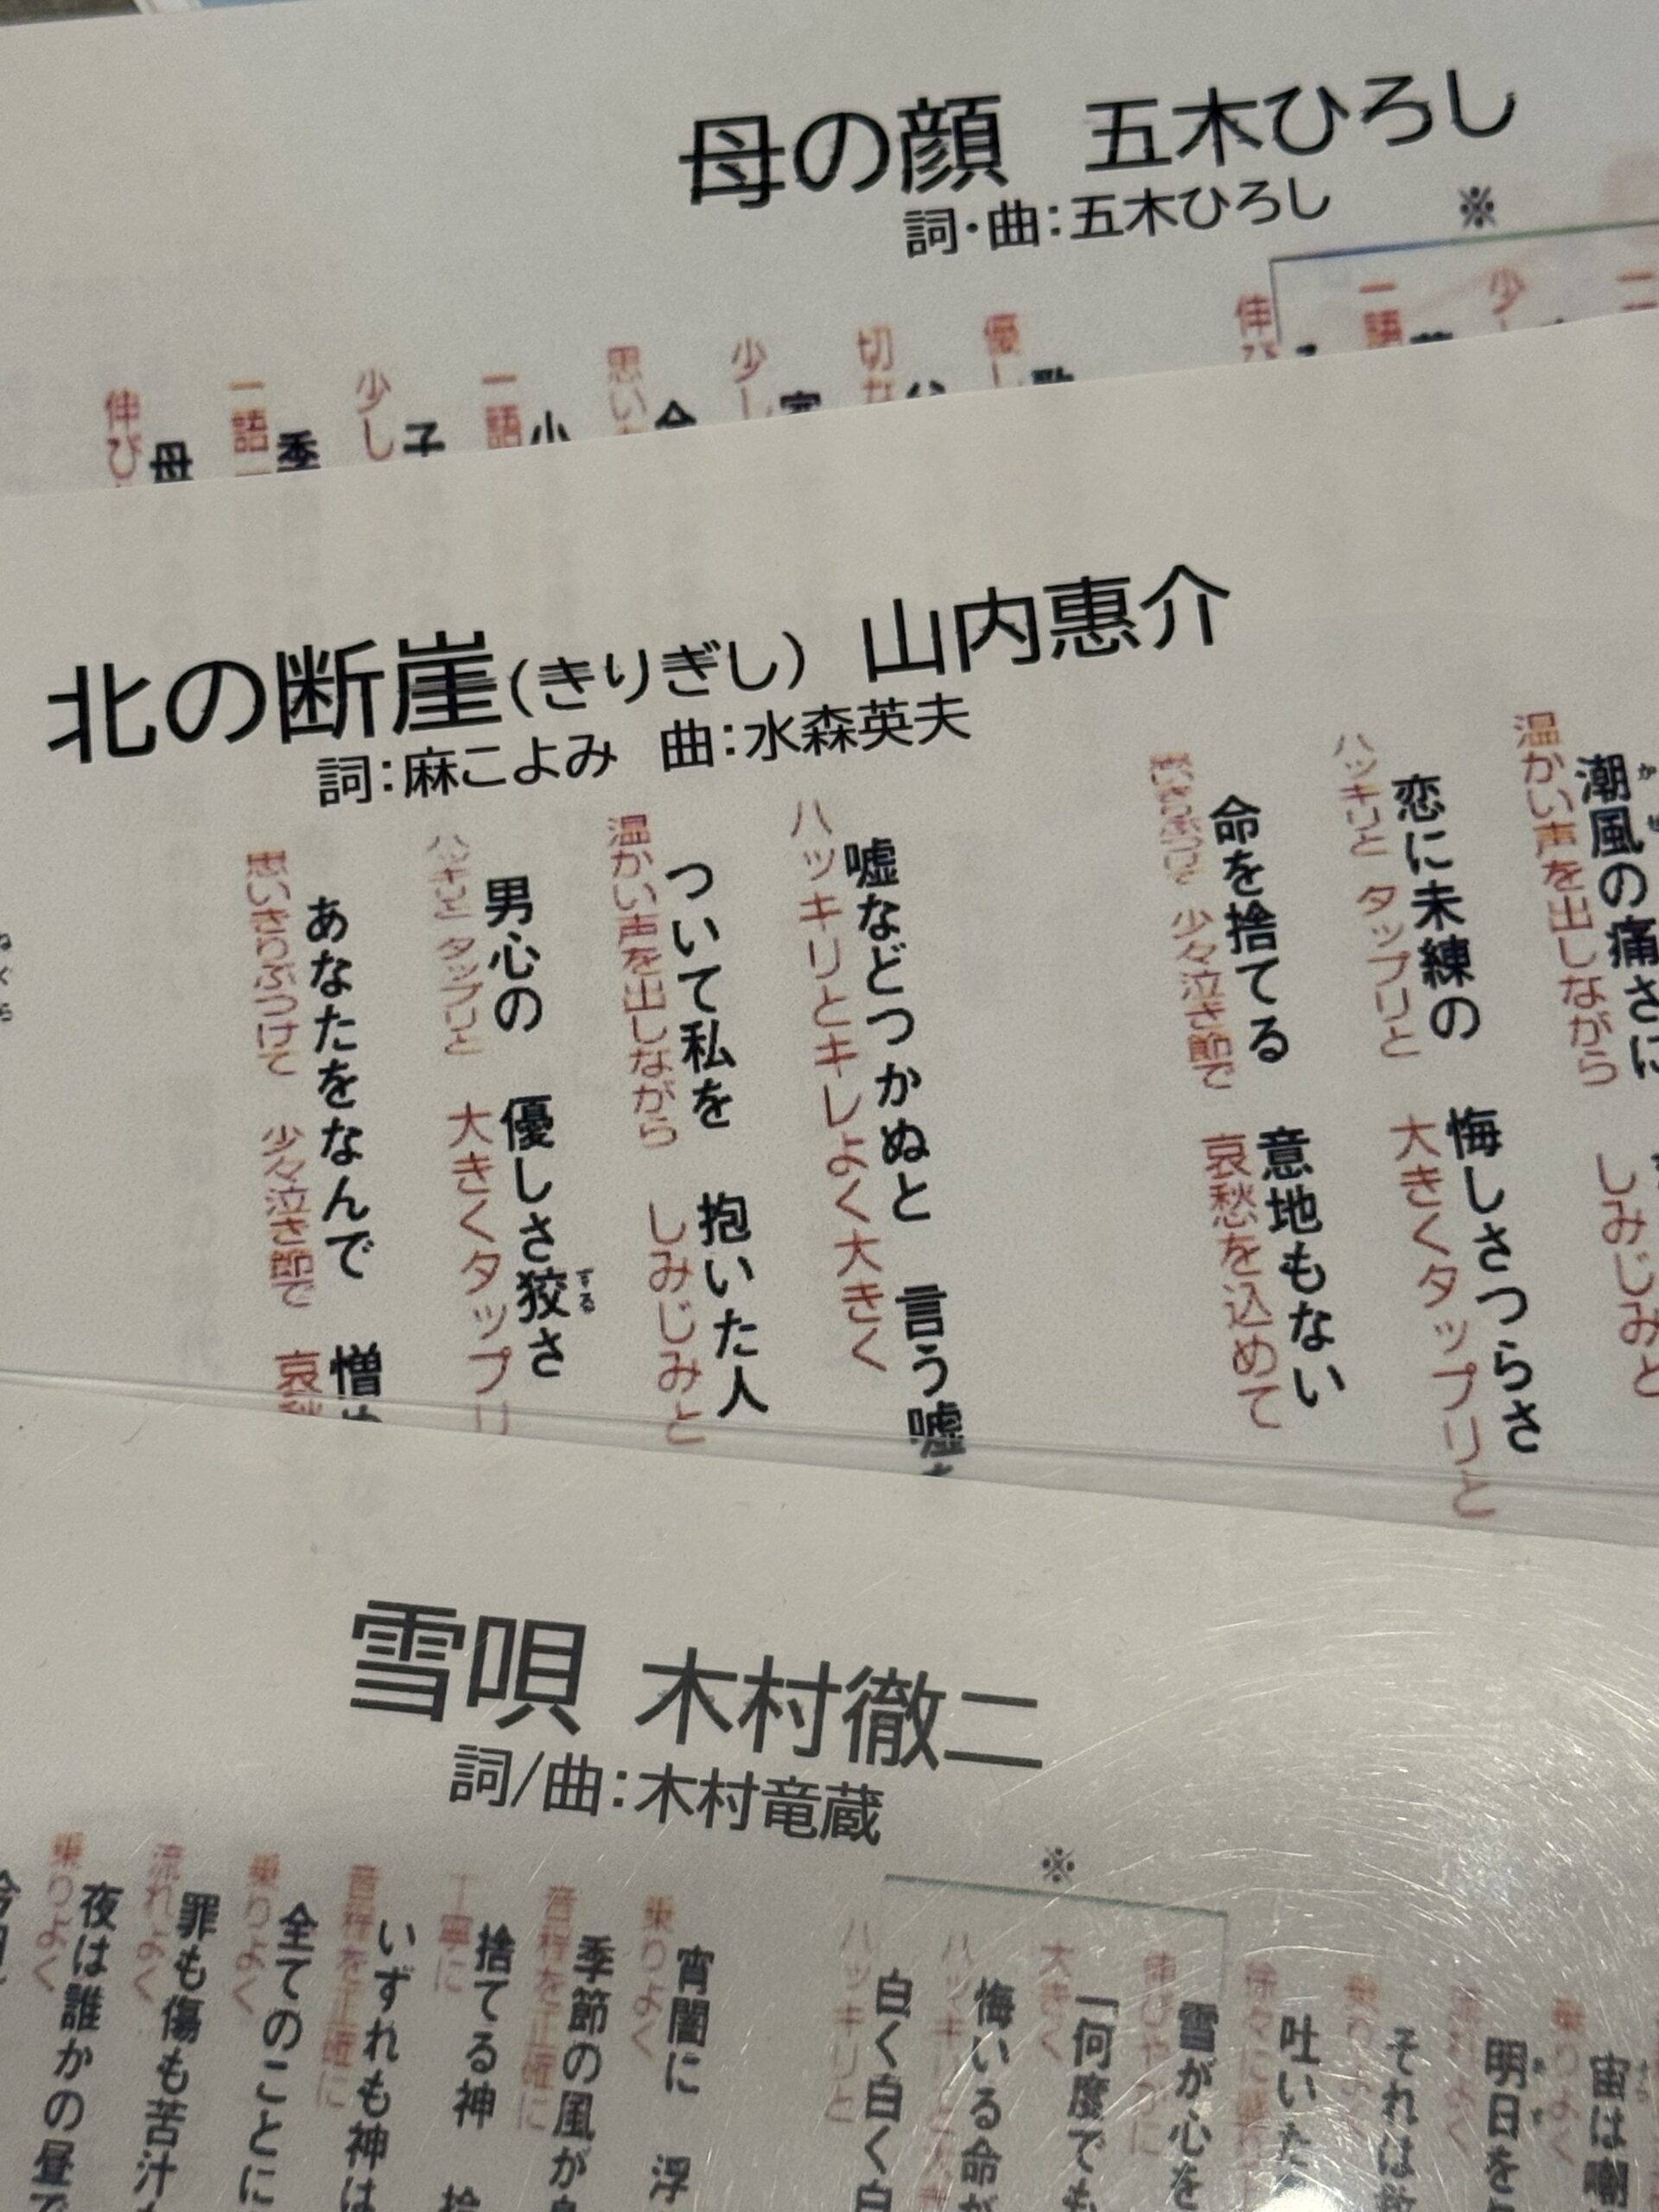 母の顔 五木ひろし
詞・曲：五木ひろし
※
二
少し
一語
伸び
優し
切な
少し
思い
一語 小
少し 子
一語一 季
伸び 母
北の断崖(きりぎし) 山内惠介
詞：麻こよみ 曲：水森英夫
潮風の痛さに
温かい声を出しながら しみじみと
恋に未練の 悔しさつらさ
ハッキリと タップリと 大きくタップリと
命を捨てる 意地もない
思いきりぶつけて 少々泣き節で 哀愁を込めて
嘘などつかぬと 言う嘘
ハッキリとキレよく大きく
ついて私を 抱いた人
温かい声を出しながら しみじみと
男心の 優しさ狡さ
ずる
ハッキリと タップリと 大きくタップリ
あなたをなんで 憎
思いきりぶつけて 少々泣き節で 哀愁
雪唄 木村徹二
詞/曲：木村竜蔵
※
宙は嘲
乗りよく
明日を
流れよく
それは
乗りよ
吐いた
徐々に
雪が心を
伸びやかに
「何度でも
大きく
悔いる命が
ハッキリと
白く白く白
ハッキリと
宵闇に 浮
乗りよく
季節の風が
音程を正確に
捨てる神 拾
丁寧に
いずれも神は
音程を正確に
全てのことに
乗りよく
罪も傷も苦汁
流れよく
夜は誰かの昼で
乗りよく